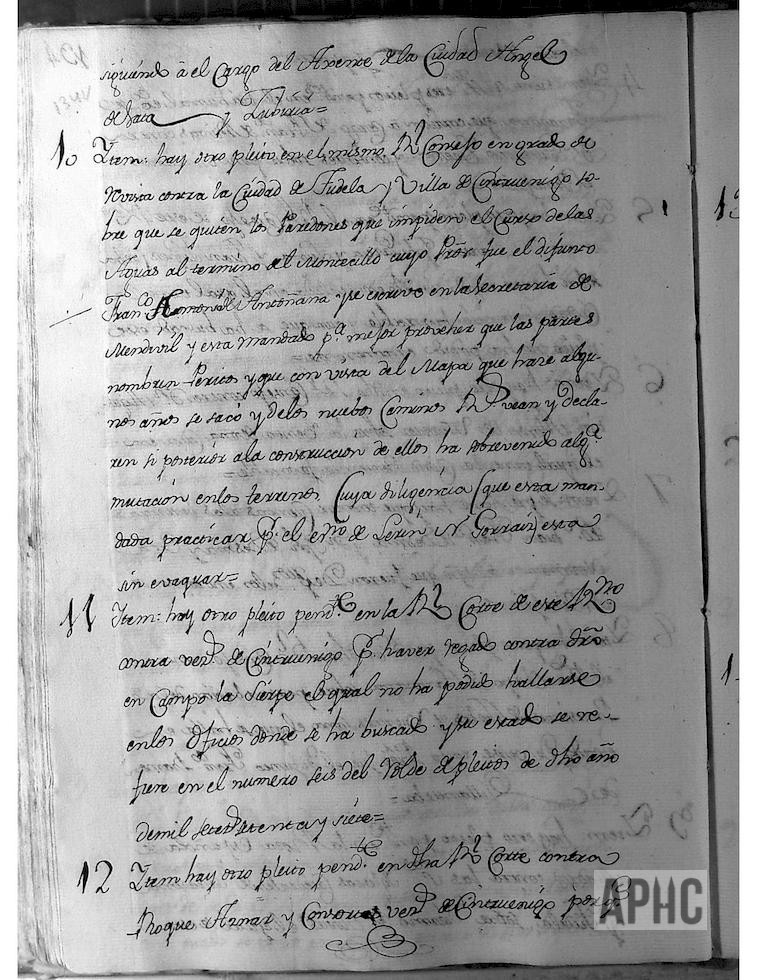 siguiendo â el Cargo del Ajente de la Ciudad Angel
de Baca y Lubiria=
10 Ytem: hay otro pleito en el mismo Rl Consejo en grado de
Revista contra la Ciudad de Tudela y Villa de Cintruenigo so-
bre que se quiten los Paredones que impiden el Curso de las
Aguas al termino del Montecillo cuyo Pror. fue el difunto
Franco. Antoñana y se escrive en la Secretaria de
Mendivil y esta mandado pa. mejor proveher que las partes
nombren Peritos y que con vista del Mapa que hace algu-
nos años se sacò y de los nuebos Caminos Rs. vean y decla-
ren si posterior a la construccion de ellos ha sobrevenido alga.
mutación en los terrenos. Cuya diligencia (que esta man-
dada practicar pr. el esno de Lerin N. Gorraiz) esta
sin evaquar=
11 Ytem: hay otro pleito pendte. en la Rl Corte de este Rno
contra vezs. de Cintruenigo pr. haver regado contra dro
en Campo la Sierpe el qual no ha podido hallarse
en los oficios donde se ha buscado y su estado se re-
fiere en el numero seis del Rolde de pleitos de dho año
de mil setets. setenta y siete=
12 Ytem hay otro pleito pendte. en dha Rl Corte contra
Roque Aznar y Consortes vezs. de Cintruenigo por qe
APHC